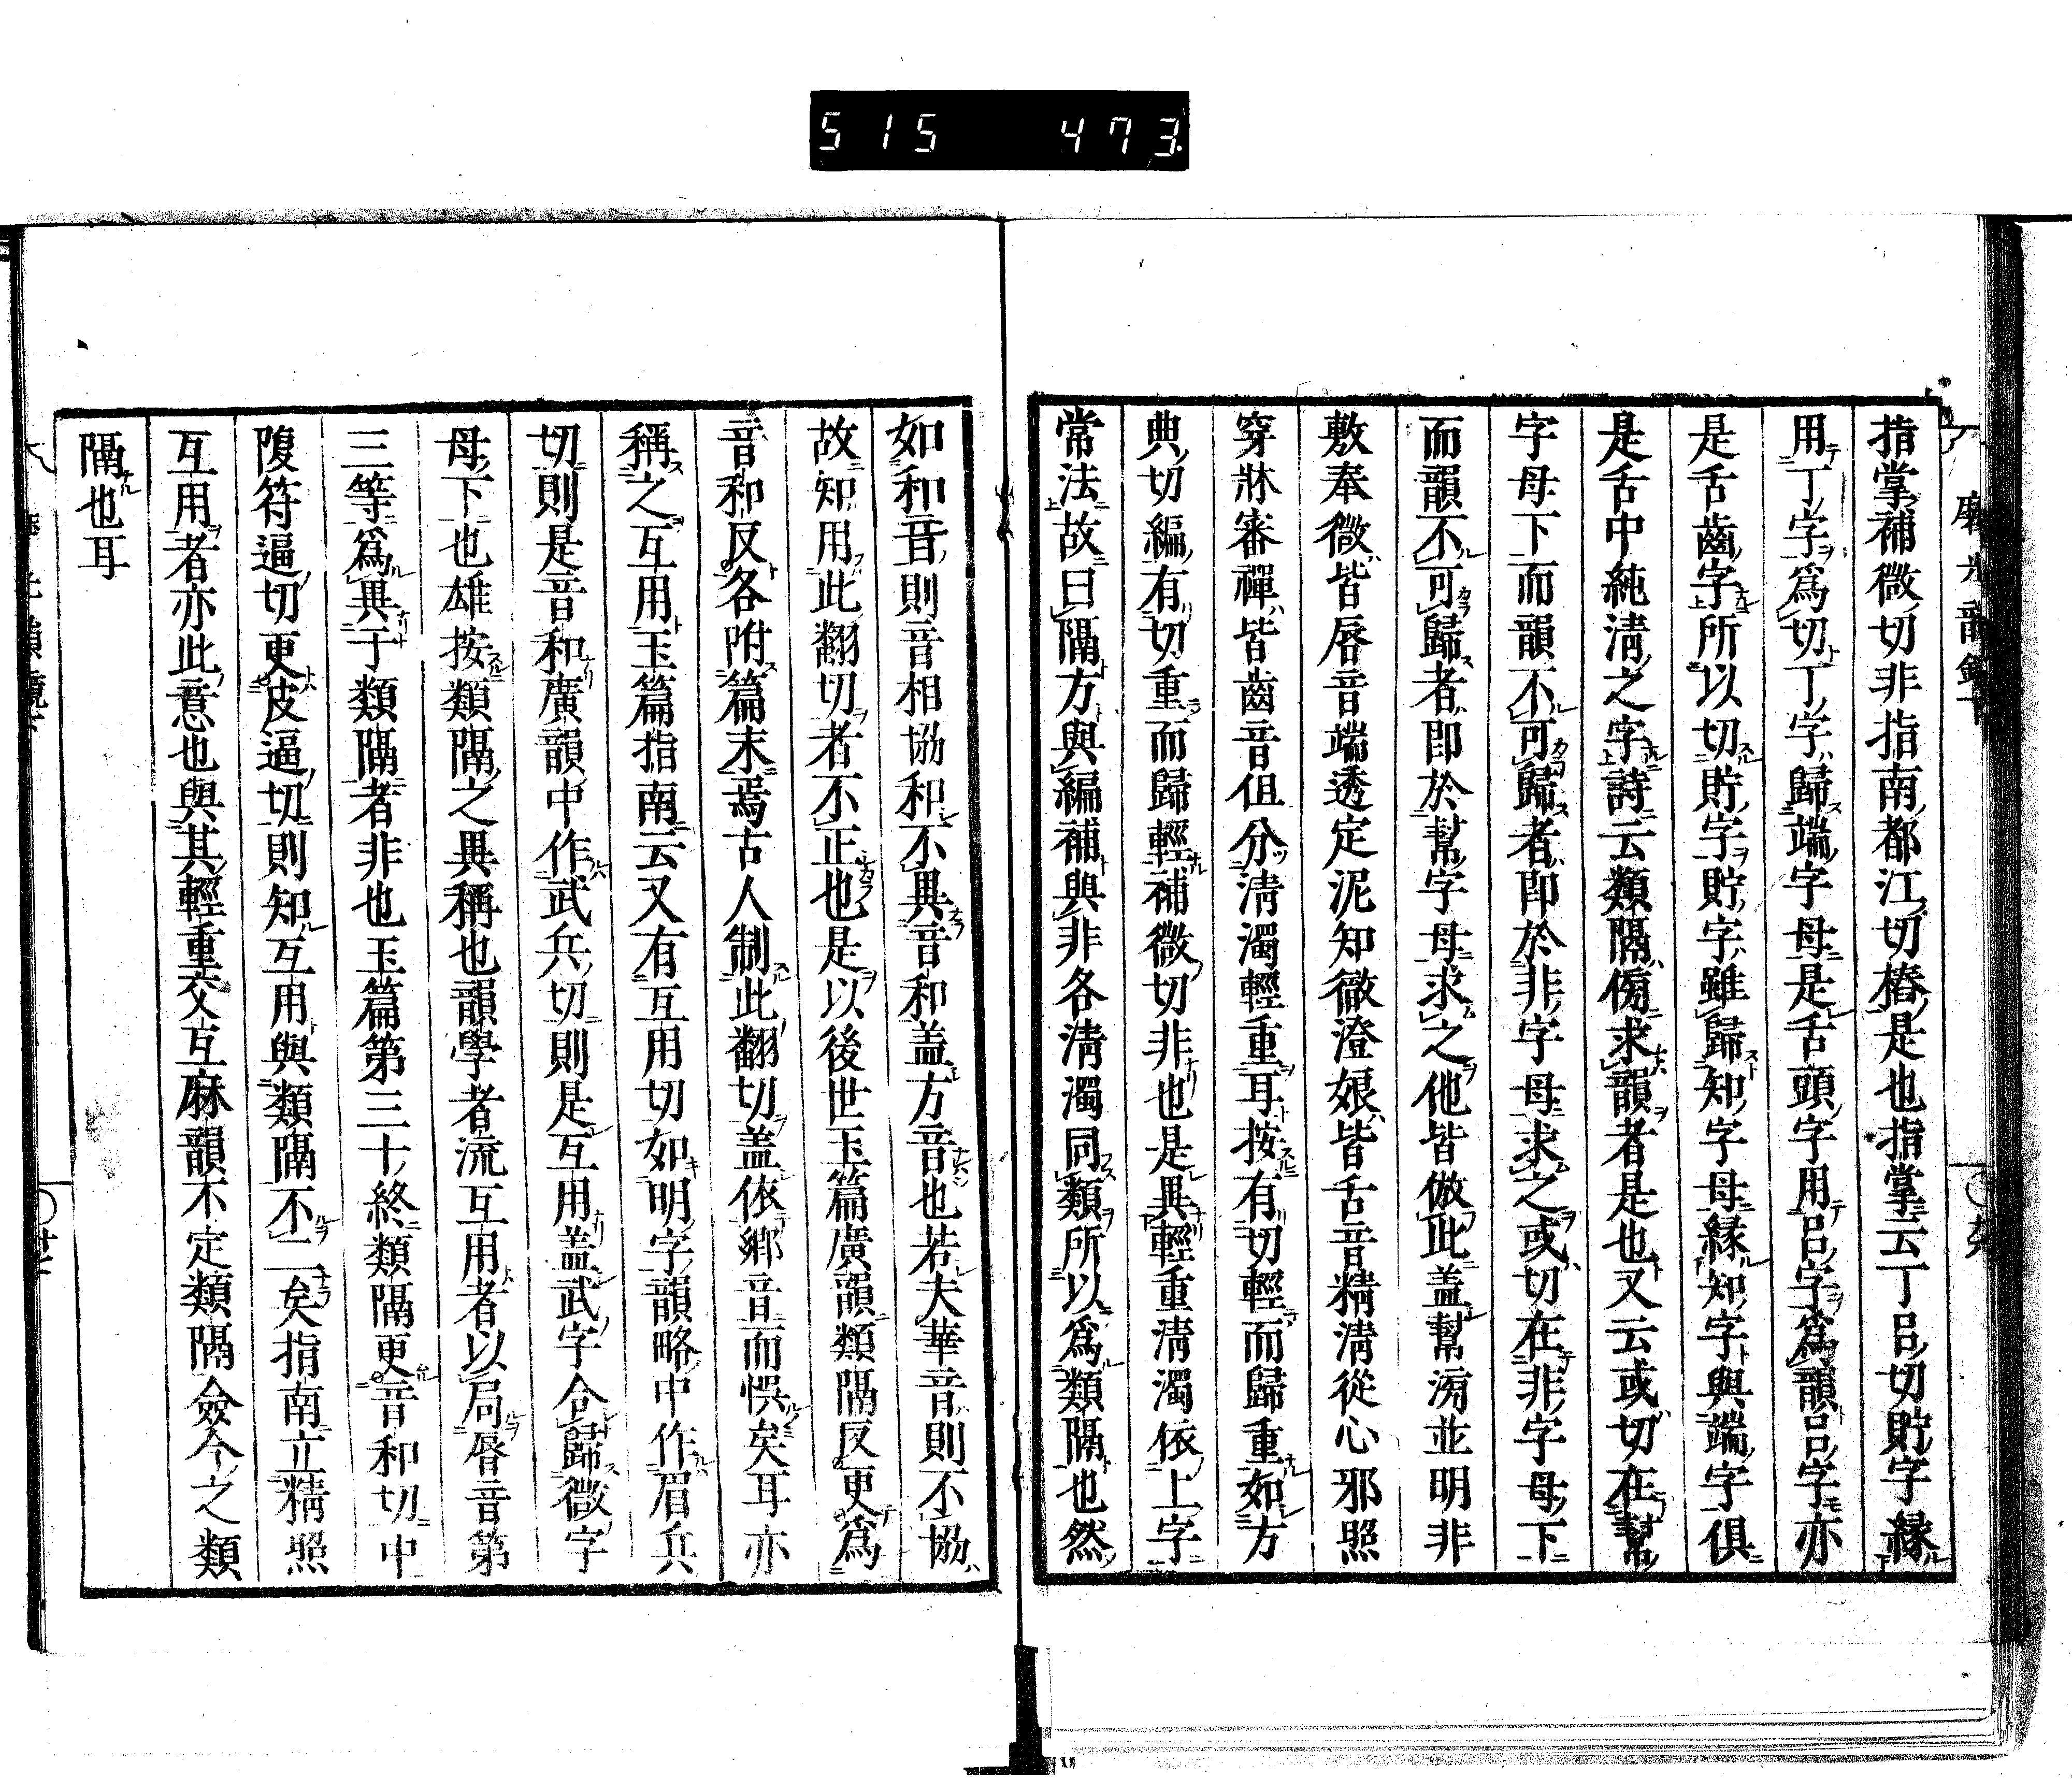 515 473
指掌補微切非指南都江切樁是也指掌云丁呂切貯字縁
用丁字爲切丁字歸端字母是舌頭字用呂字爲韻呂字亦
是舌齒字所以切貯字貯字雖歸知字母縁知字與端字俱
是舌中純淸之字詩云類隔傍求韻者是也又云或切在幫
字母下而韻不可歸者即於非字母求之或切在非字母下
而韻不可歸者即於幫字母求之他皆倣此盖幫滂並明非
敷奉微皆唇音端透定泥知徹澄娘皆舌音精淸從心邪照
穿牀審禪皆齒音但分淸濁輕重耳按有切輕而歸重如方
典切編有切重而歸輕補微切非也是異輕重淸濁依上字
常法故曰隔方與編補與非各淸濁同類所以爲類隔也然
如和音則音相協和不異音和盖方音也若夫華音則不協
故知用此翻切者不正也是以後世玉篇廣韻類隔反更爲
音和反各附篇末焉古人制此翻切盖依鄕音而悞矣耳亦
稱之互用玉篇指南云又有互用切如明字韻略中作眉兵
切則是音和廣韻中作武兵切則是互用盖武字合歸微字
母下也雄按類隔之異稱也韻學者流互用者以局唇音第
三等爲異于類隔者非也玉篇第三十終類隔更音和切中
愎符逼切更皮逼切則知互用與類隔不二矣指南立精照
互用者亦此意也與其輕重交互麻韻不定類隔僉今之類
隔也耳